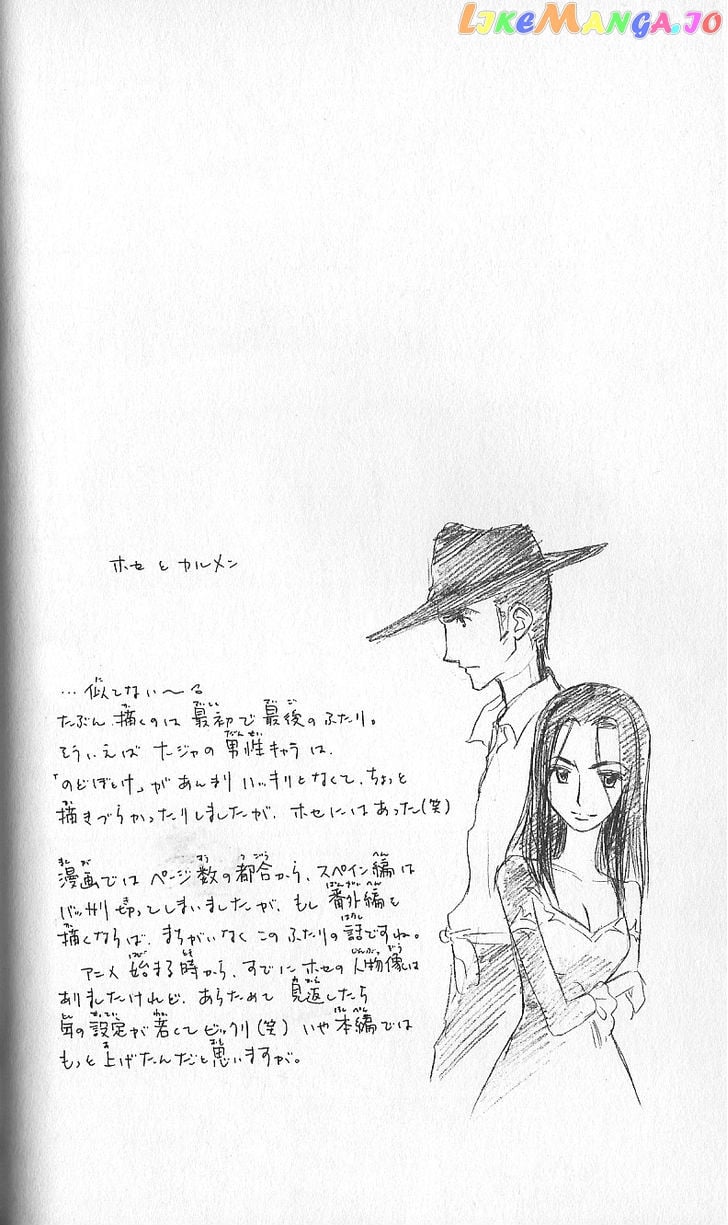 LIKEMANGA.IO
ホセ と カルメン
…似てない〜る
たぶん 描くのは 最初で 最後の ふたり。
そういえば ナージャの 男性キャラ は、
「のどぼとけ」が あんまり ハッキリとなくて、ちょっと
描きづらかったりしましたが、ホセにはあった(笑)
漫画では ページ数の都合から、スペイン編は
バッサリ 切ってしまいましたが、もし 番外編を
描くならば、まちがいなく このふたりの 話ですね。
アニメ 始まる時から、すでに ホセの 人物像は
ありましたけれど、あらためて 見返したら
年の設定が 若くて ビックリ(笑) いや 本編では
もっと 上げたんだと 思いますが。